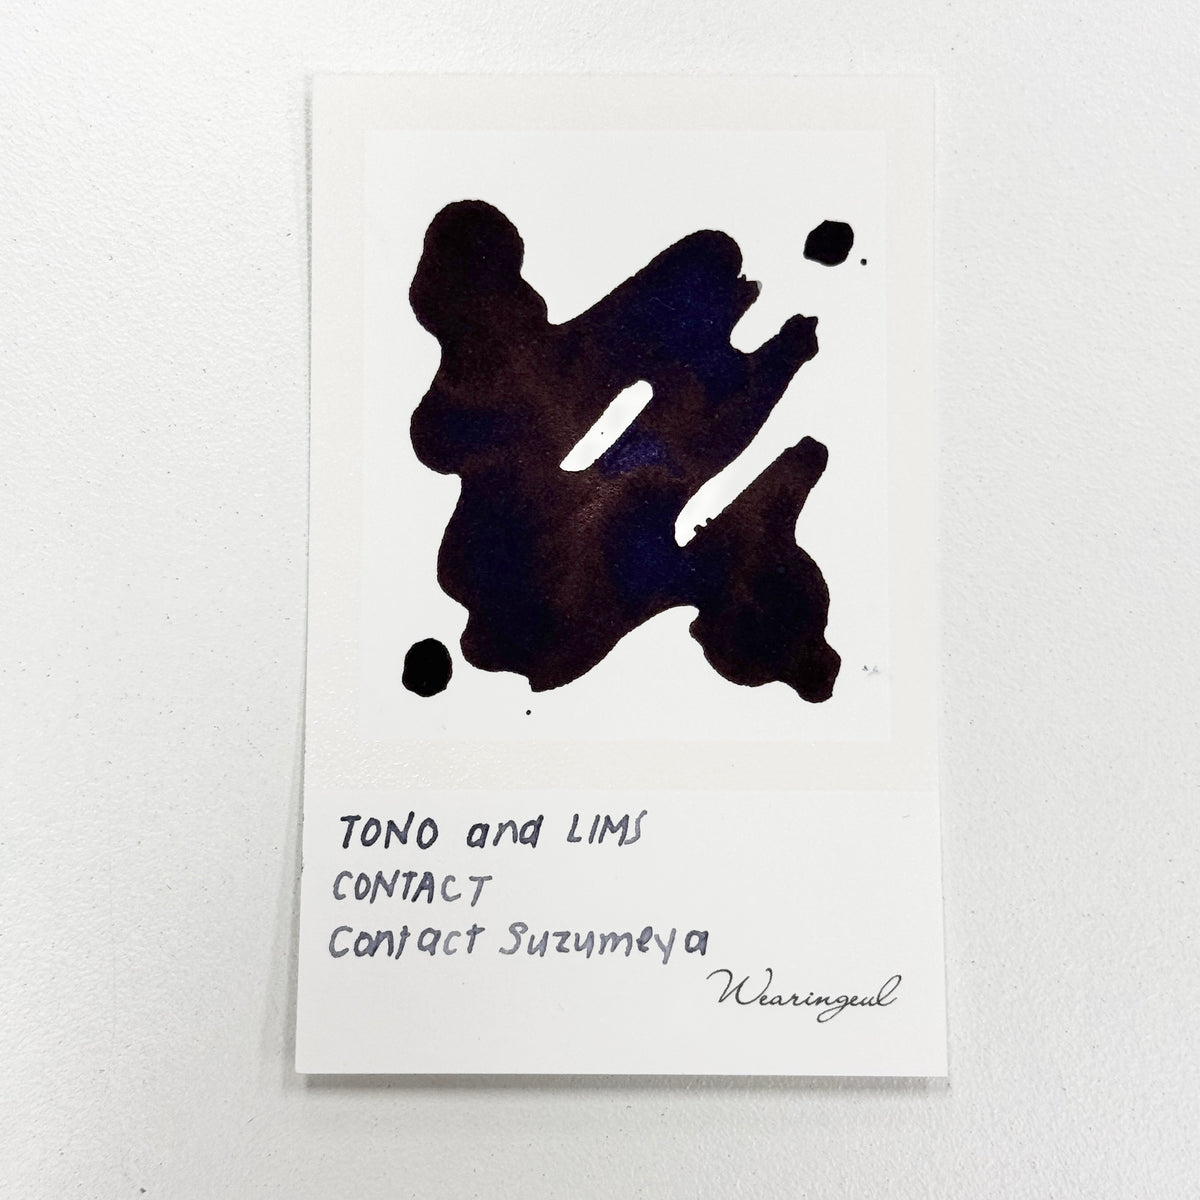 TONO and LIMS
CONTACT
Contact Suzumeya
Wearingeul